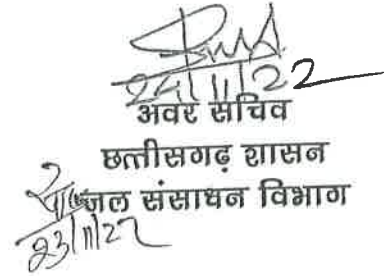 24/11/22
अवर सचिव
छत्तीसगढ़ शासन
जल संसाधन विभाग
23/11/22